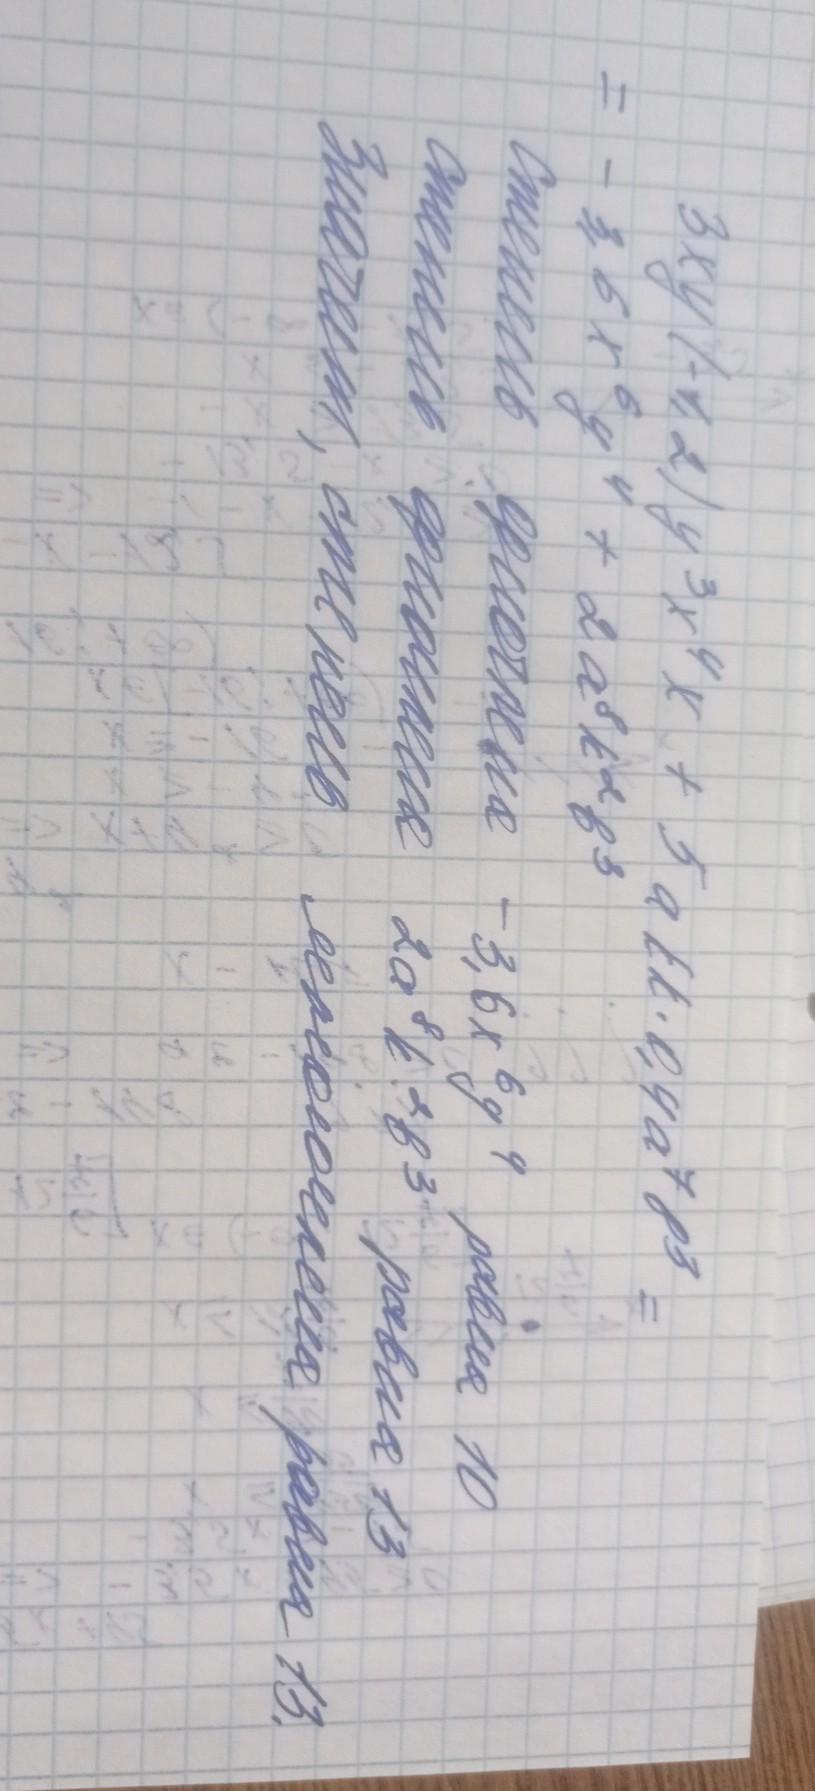 3xy(-1,2)y³x⁴x + 5akk·0,4a⁷b³ =
= -3,6x⁶y⁴ + 2a⁸k²b³
степень одночлена -3,6x⁶y⁴ равна 10
степень одночлена 2a⁸k²b³ равна 13
Значит, степень многочлена равна 13.